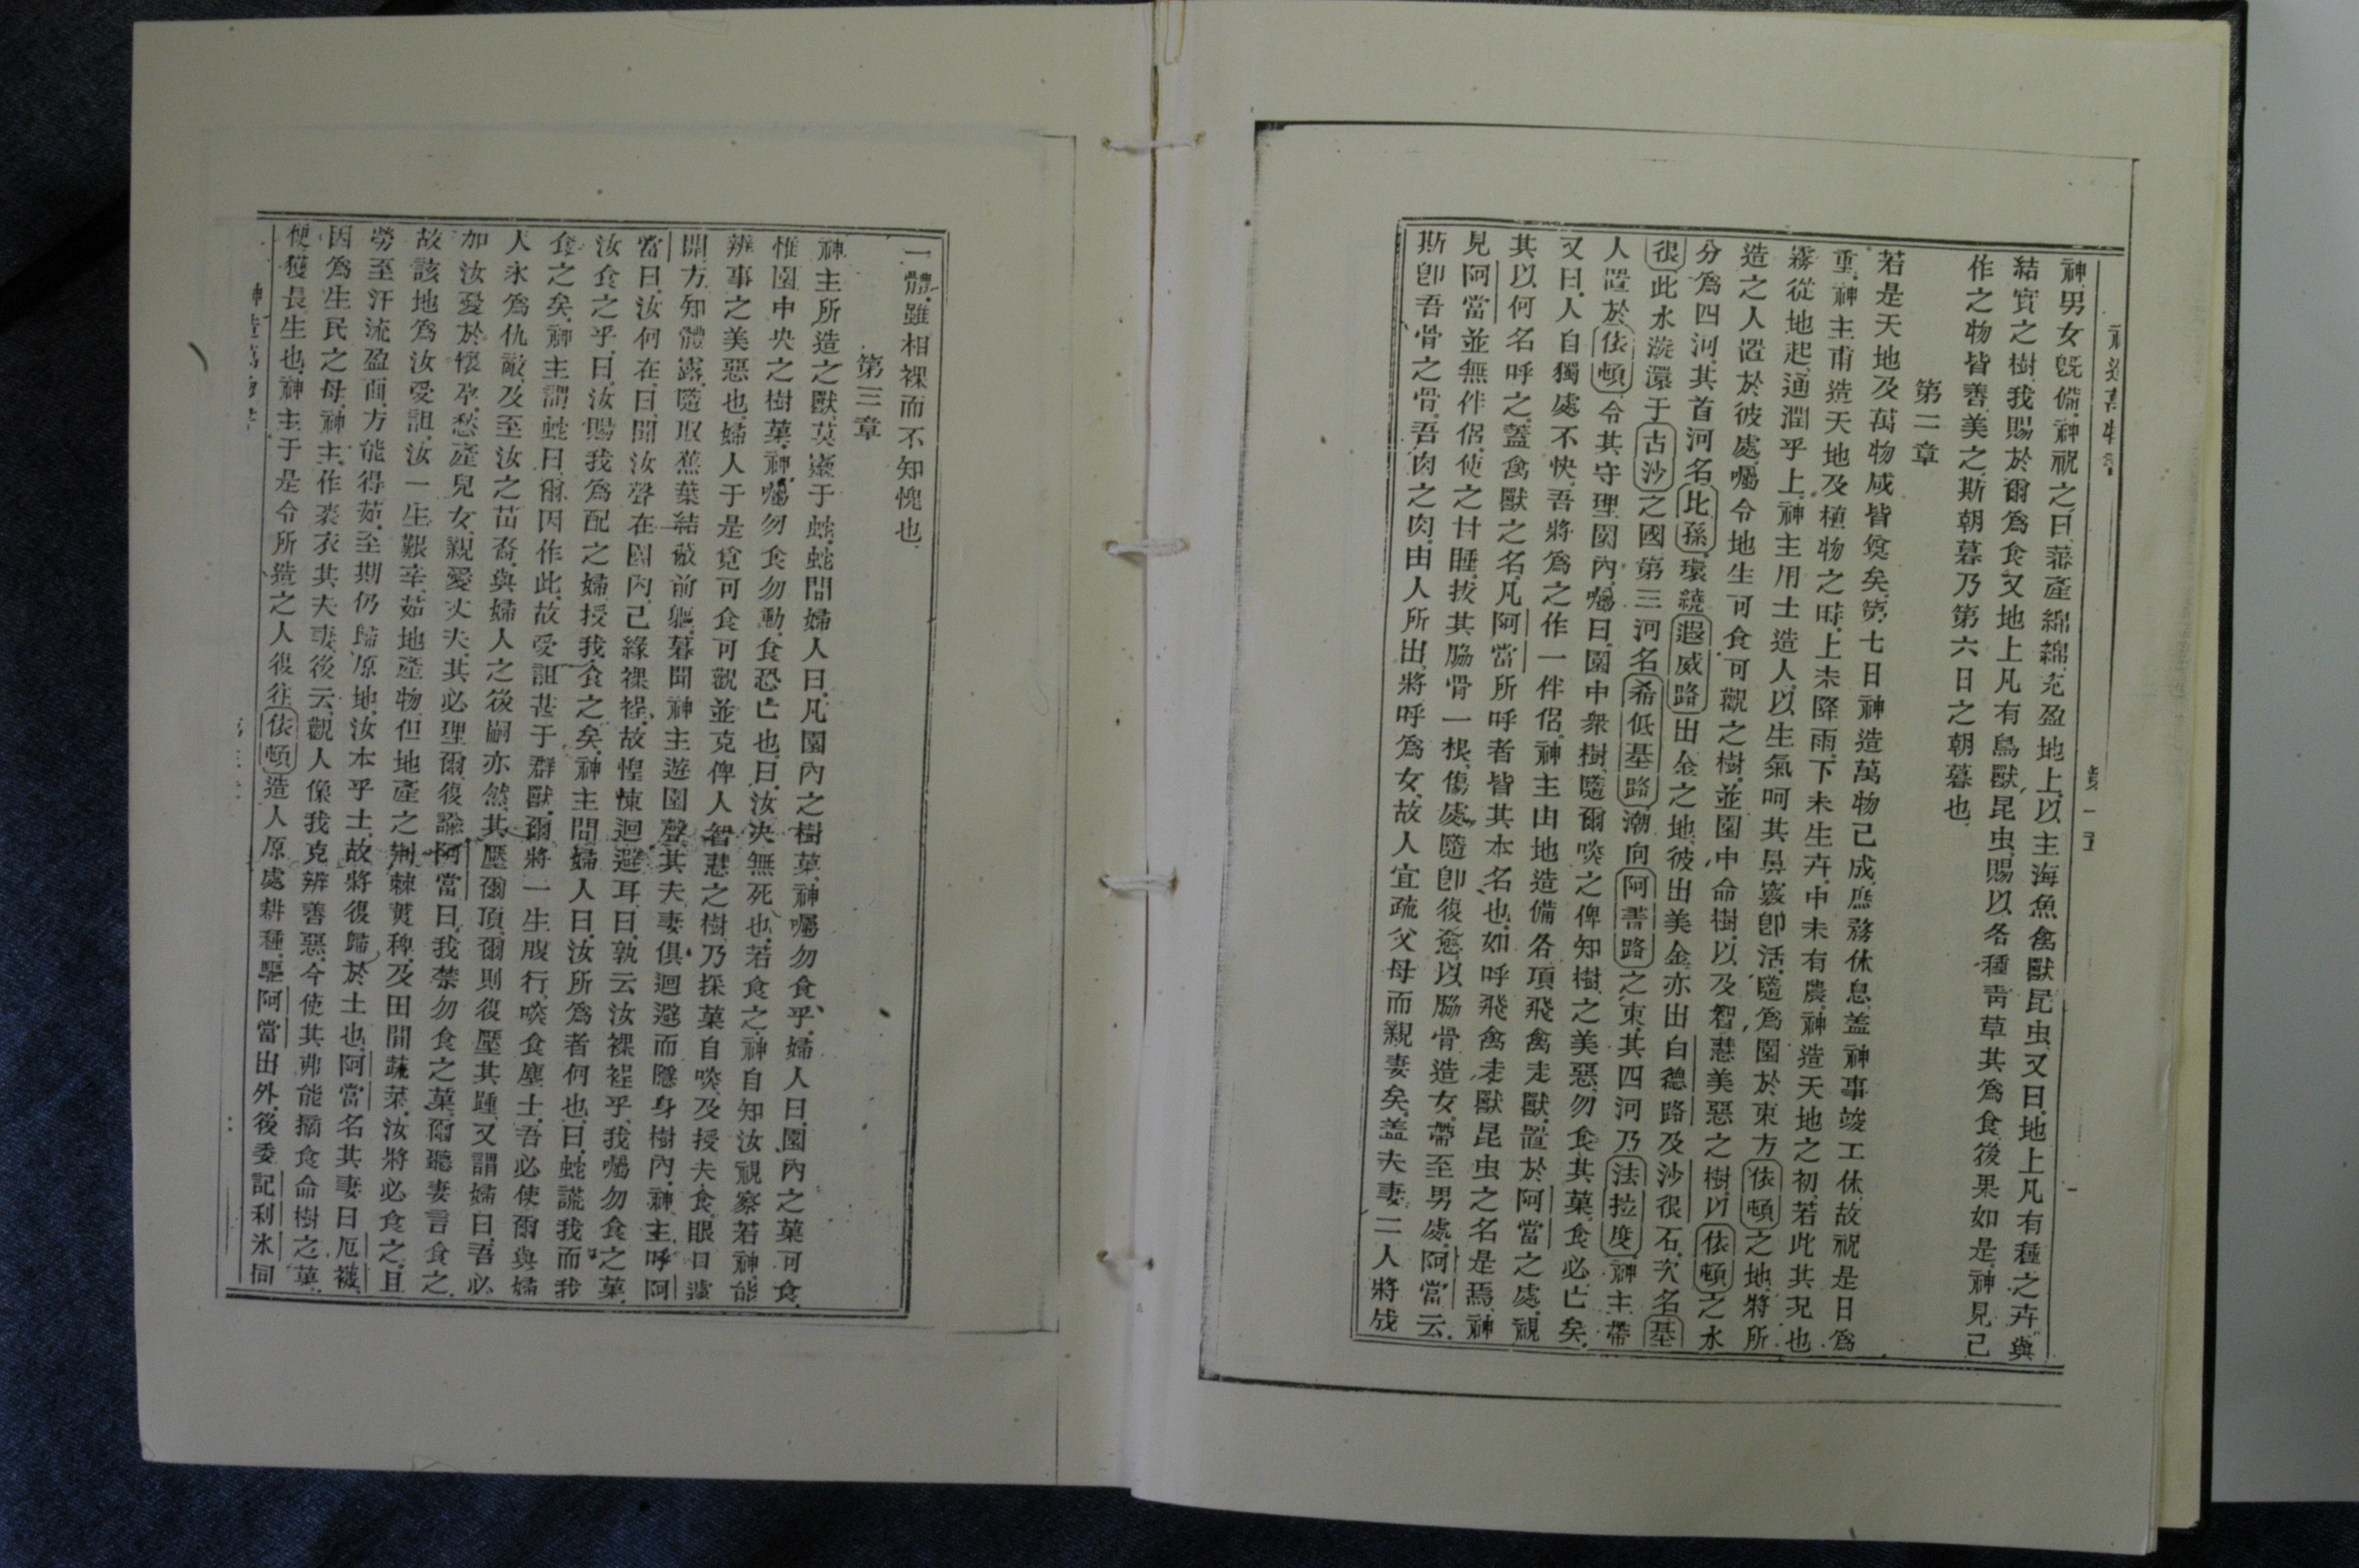 神男女既備神祝之曰蕃產綿綿充盈地上以主海魚禽獸昆虫又曰地上凡有種之卉與
結實之樹我賜於爾爲食又地上凡有鳥獸昆虫賜以各種靑草其爲食後果如是神見己
作之物皆善美之斯朝暮乃第六日之朝暮也
第二章
若是天地及萬物咸皆奠矣第七日神造萬物己成庶務休息盖神事竣工休故祝是日爲
重神主甫造天地及植物之時上未降雨下未生卉中未有農神造天地之初若此其况也
霧從地起通潤乎上神主用土造人以生氣呵其鼻竅卽活隨爲園於東方依頓之地將所
造之人置於彼處囑令地生可食可觀之樹並園中命樹以及智慧美惡之樹以依頓之水
分爲四河其首河名比孫環繞遐威路出金之地彼出美金亦出白德路及沙很石次名基
很此水漩瀤于古沙之國第三河名希低基路潮向阿書路之東其四河乃法拉度神主帶
人置於依頓令其守理園內囑曰園中衆樹隨爾啖之俾知樹之美惡勿食其菓食必亡矣
又曰人自獨處不快吾將爲之作一伴侶神主由地造備各項飛禽走獸置於阿當之處視
其以何名呼之蓋禽獸之名凡阿當所呼者皆其本名也如呼飛禽走獸昆虫之名是焉神
見阿當並無伴侶使之甘睡拔其脇骨一根傷處隨卽復愈以脇骨造女帶至男處阿當云
斯卽吾骨之骨吾肉之肉由人所出將呼爲女故人宜疏父母而親妻矣盖夫妻二人將成
一體雖相裸而不知愧也
第三章
神主所造之獸莫靈于蛇蛇問婦人曰凡園內之樹菓神囑勿食乎婦人曰園內之菓可食
惟園中央之樹菓神囑勿食勿動食恐亡也曰汝决無死也若食之神自知汝視察若神能
辨事之美惡也婦人于是覓可食可觀並克俾人智慧之樹乃採菓自啖及授夫食眼目遂
開方知體露隨取蕉葉結蔽前軀暮聞神主遊園聲其夫妻俱迴避而隱身樹內神主呼阿
當曰汝何在曰聞汝聲在園內己緣裸裎故惶悚迴避耳曰孰云汝裸裎乎我囑勿食之菓
汝食之乎曰汝賜我爲配之婦授我食之矣神主問婦人曰汝所爲者何也曰蛇謊我而我
食之矣神主謂蛇曰爾因作此故受詛甚于群獸爾將一生腹行啖食塵土吾必使爾與婦
人永爲仇敵及至汝之苗裔與婦人之後嗣亦然其壓爾頂爾則復壓其踵又謂婦曰吾必
加汝憂於懷孕愁產兒女親愛丈夫其必理爾復諭阿當曰我禁勿食之菓爾聽妻言食之
故該地爲汝受詛汝一生艱辛茹地產物但地產之荆棘蒉稗及田間蔬菜汝將必食之且
勞至汗流盈面方能得茹至期仍歸原地汝本乎土故將復歸於土也阿當名其妻曰厄襪
因爲生民之母神主作裘衣其夫妻後云觀人像我克辨善惡今使其弗能摘食命樹之菓
便獲長生也神主于是令所造之人復往依頓造人原處耕種驅阿當出外後委記利氷伺